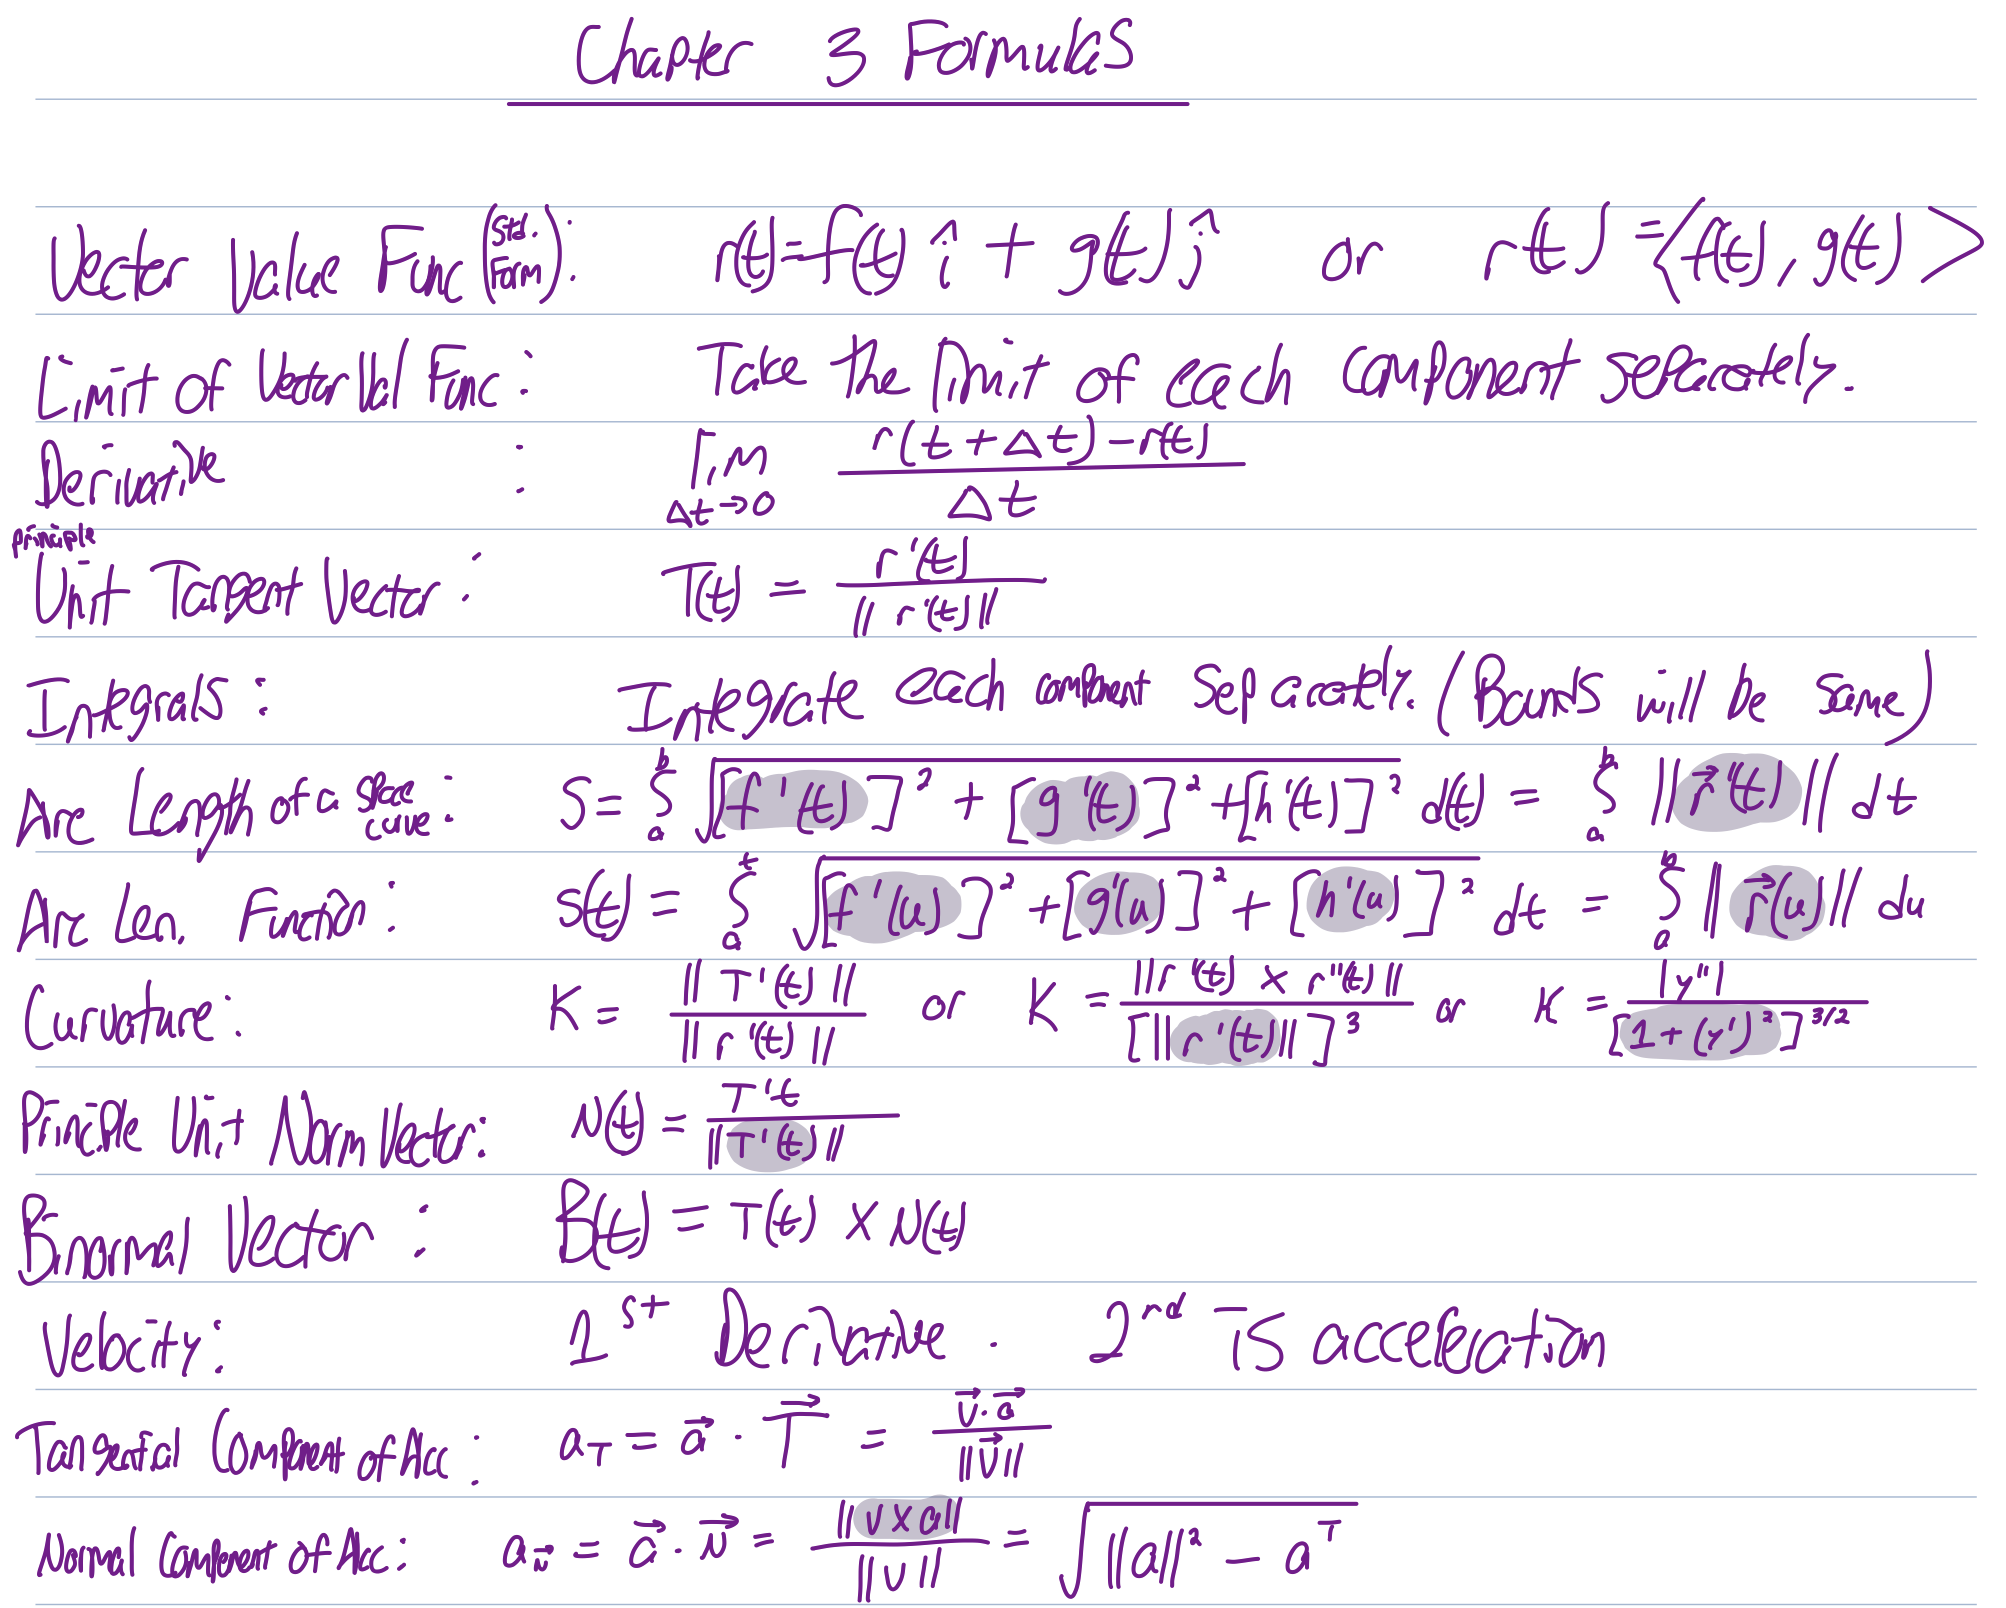 Chapter 3 Formulas
Vector Value Func (Std. Form): r(t)=f(t) î + g(t) ĵ or r(t) = <f(t), g(t)>
Limit of Vector Val Func: Take the limit of each component separately.
Derivative : lim Δt→0 (r(t+Δt)-r(t))/Δt
principle
Unit Tangent Vector: T(t) = r'(t)/||r'(t)||
Integrals: Integrate each component separately. (Bounds will be same)
Arc Length of a space curve: S = ∫_a^b √([f'(t)]² + [g'(t)]² + [h'(t)]²) d(t) = ∫_a^b ||r⃗'(t)|| dt
Arc Len. Function: s(t) = ∫_a^t √([f'(u)]² + [g'(u)]² + [h'(u)]²) dt = ∫_a^b ||r⃗'(u)|| du
Curvature: K = ||T'(t)||/||r'(t)|| or K = ||r'(t) × r''(t)||/[||r'(t)||]³ or K = |y''|/[1+(y')²]^3/2
Principle Unit Norm Vector: N(t) = T't/||T'(t)||
Binormal Vector: B(t) = T(t) × N(t)
Velocity: 1st Derivative. 2rd is acceleration
Tangential Component of Acc: a_T = a⃗ · T⃗ = v⃗·a⃗/||v⃗||
Normal Component of Acc: a_N⃗ = a⃗ · N⃗ = ||v×a||/||v|| = √(||a||² - a^T)